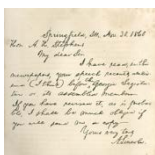 Springfield, Ills. Nov. 30. 1860
Hon. A. H. Stephens
My dear Sir
I have read, in the
newspapers, your speech recently delivered
(I think) before the Georgia Legisla-
ture, or its assembled members.
If you have revised it, as is proba-
ble, I shall be much obliged if
you will send me a copy
Yours very truly
A. Lincoln